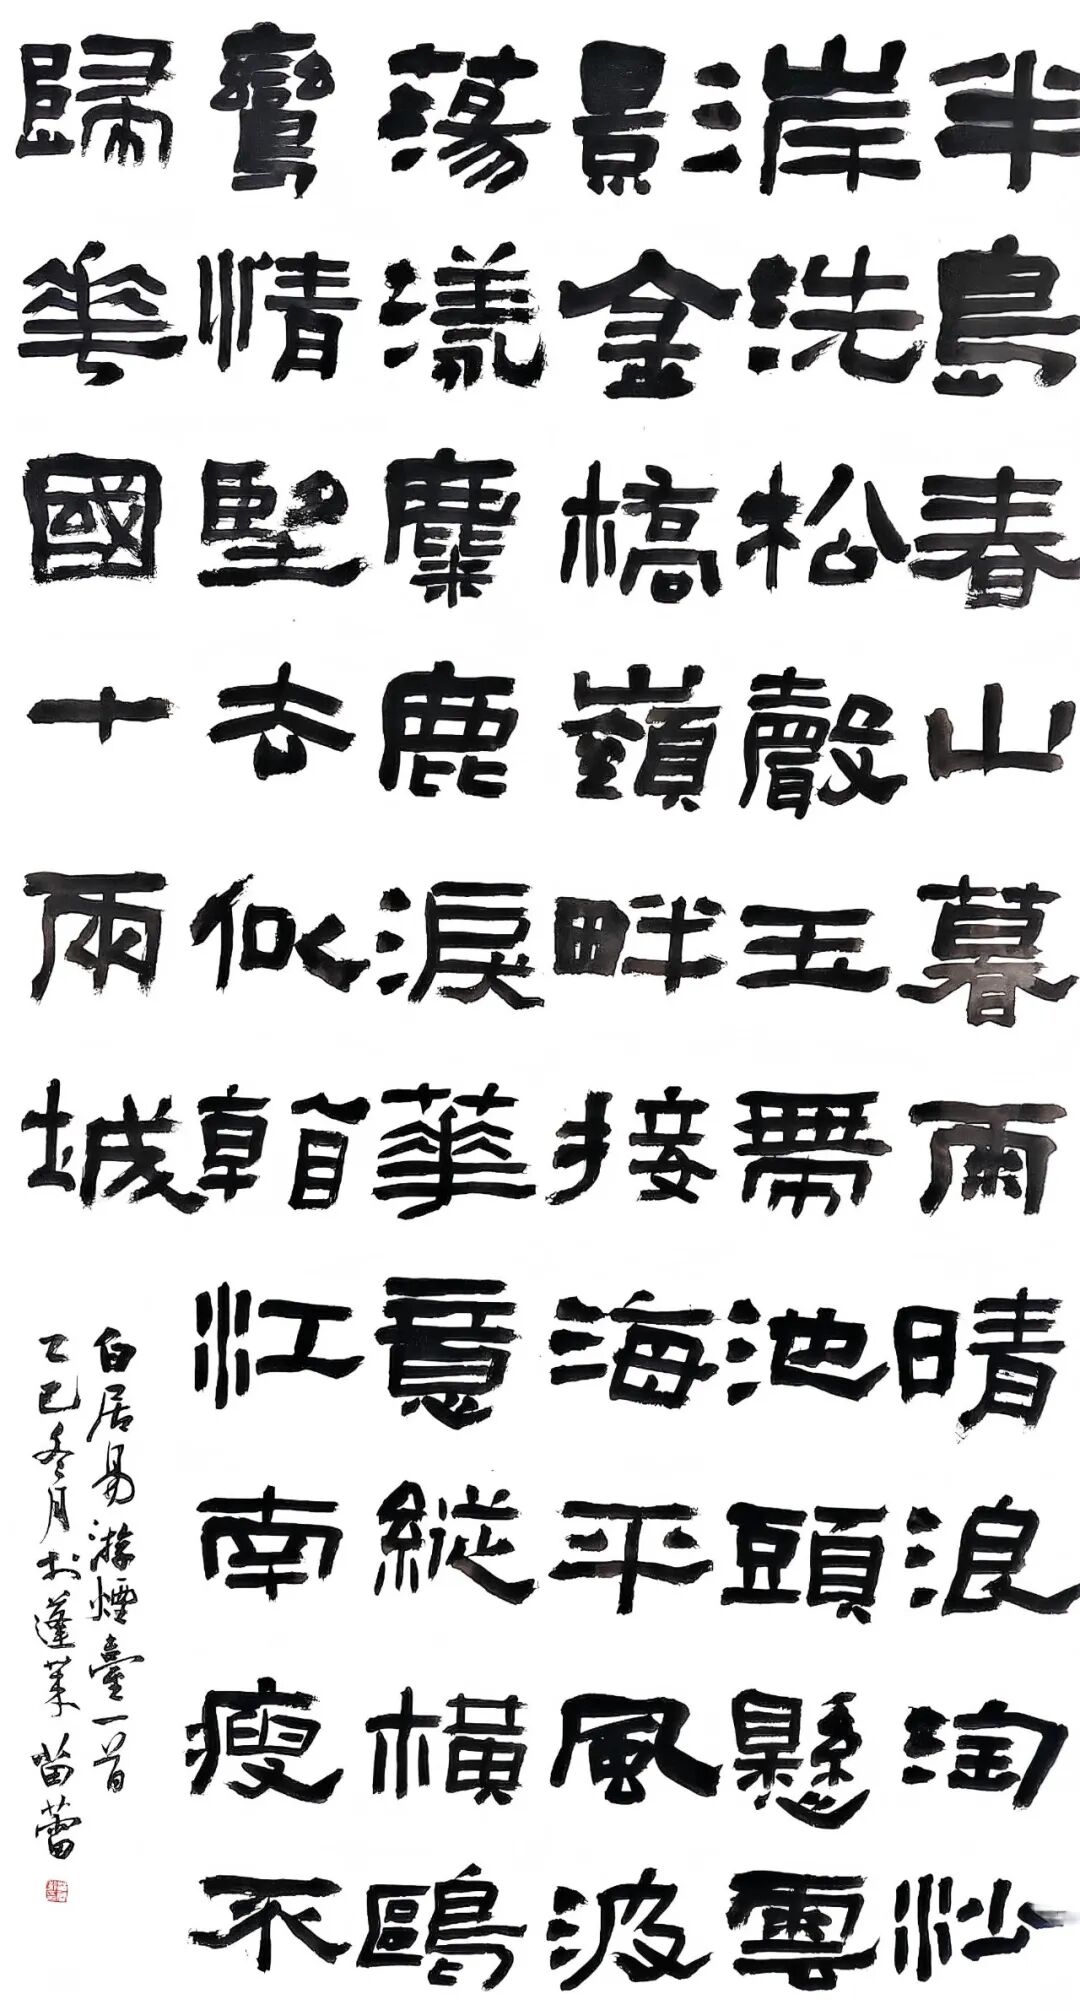 半島春山暮雨晴浪淘沙
岸洗松聲玉帶池頭懸雲
影金橋嶺畔接海平風波
蕩漾麋鹿淚華意縱橫鷗
鸞情堅去似江南瘦不
歸華國十兩城
白居易游煙臺一首
乙巳冬月於蓬萊苗蕾